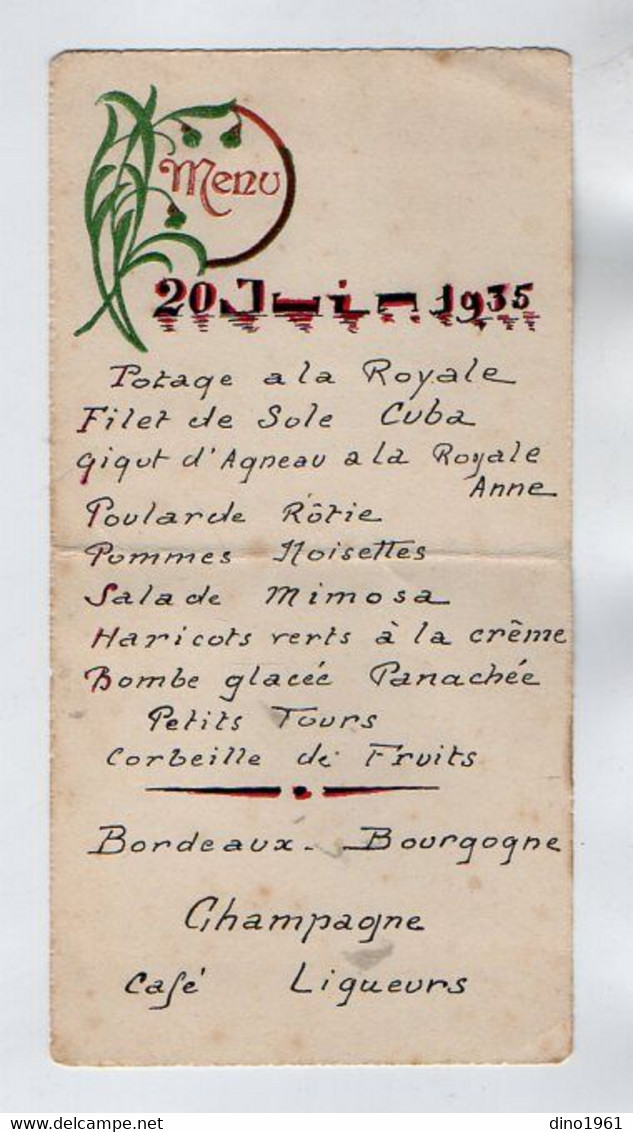 Menu
20 Juin 1935
Potage a la Royale
Filet de Sole Cuba
Gigot d'Agneau a la Royale
Anne
Poularde Rôtie
Pommes Noisettes
Salade Mimosa
Haricots verts à la crême
Bombe glacée Panachée
Petits Fours
Corbeille de Fruits
Bordeaux - Bourgogne
Champagne
Café Liqueurs
dino1961